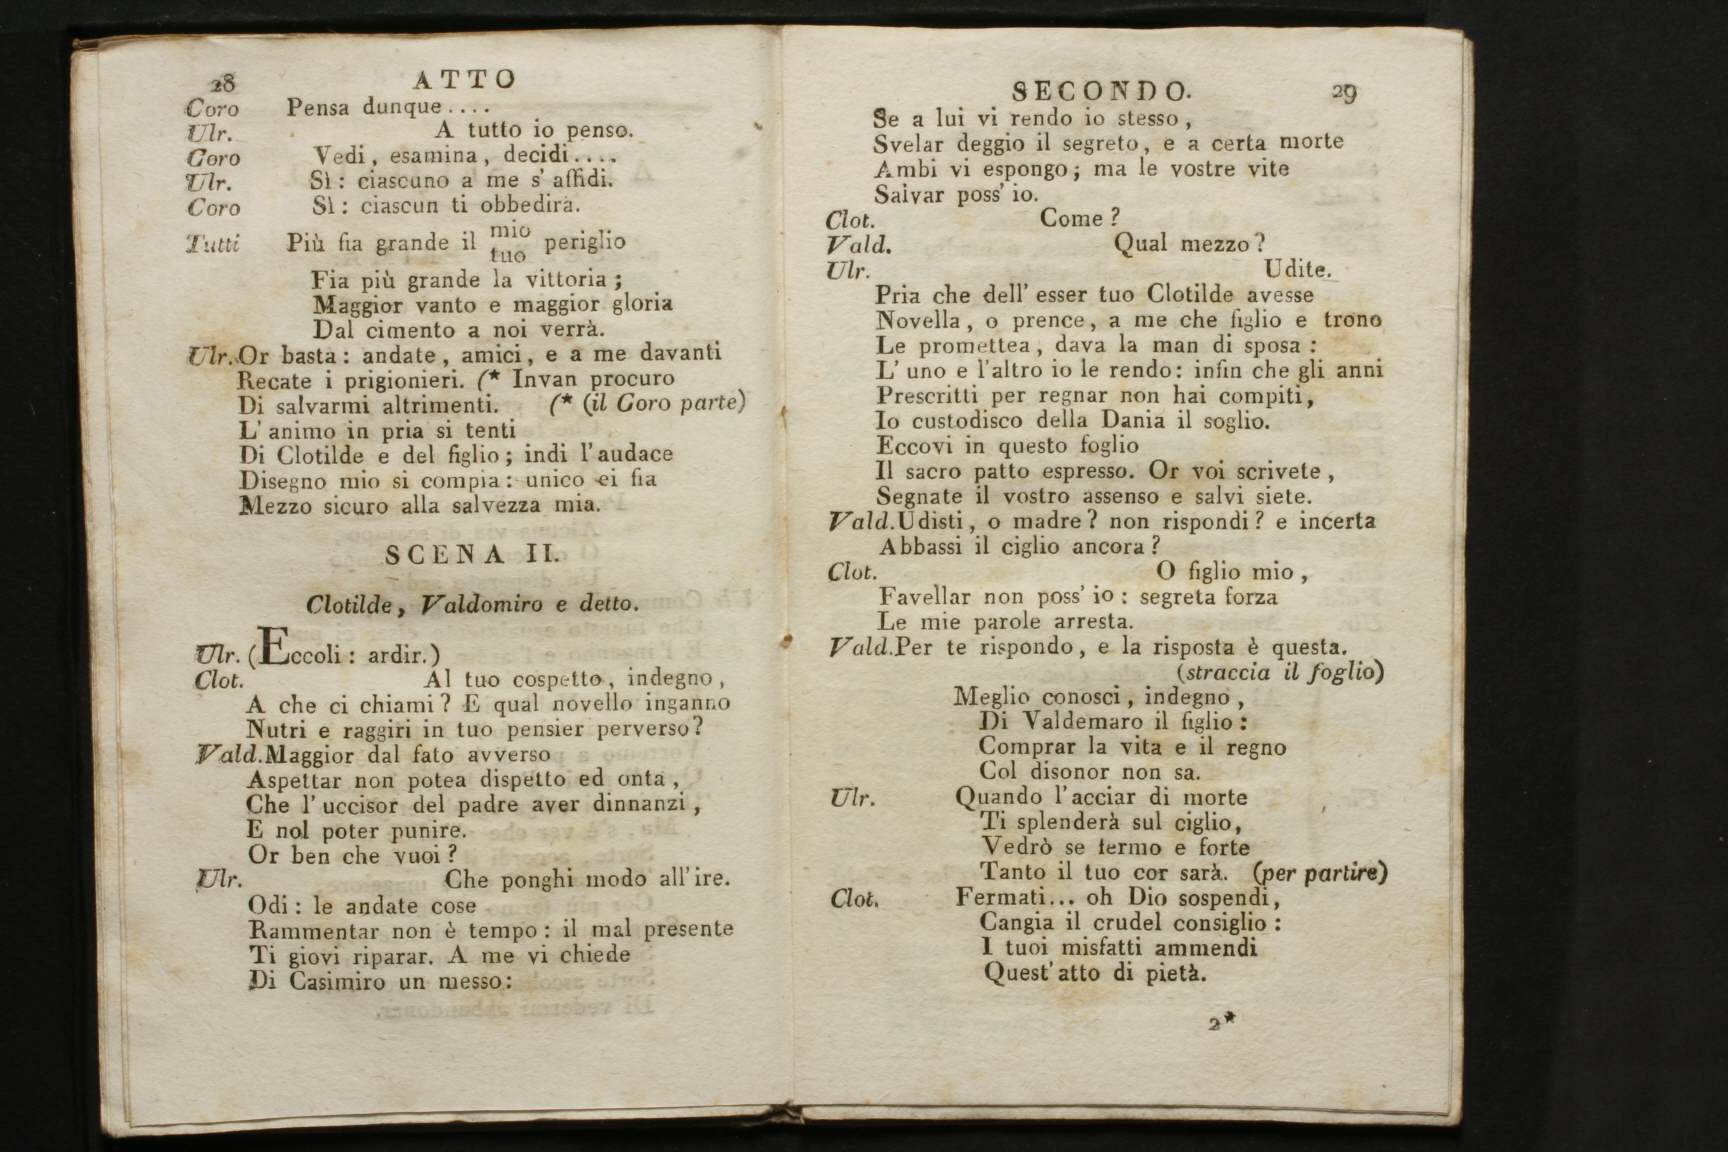 28 ATTO
Coro Pensa dunque....
Ulr. A tutto io penso.
Coro Vedi, esamina, decidi....
Ulr. Sì: ciascuno a me s' affidi.
Coro Sì: ciascun ti obbedirà.
Tutti Più fia grande il mio tuo periglio
Fia più grande la vittoria;
Maggior vanto e maggior gloria
Dal cimento a noi verrà.
Ulr. Or basta: andate, amici, e a me davanti
Recate i prigionieri. (* Invan procuro
Di salvarmi altrimenti. (* (il Coro parte)
L' animo in pria si tenti
Di Clotilde e del figlio; indi l'audace
Disegno mio si compia: unico ei fia
Mezzo sicuro alla salvezza mia.
SCENA II.
Clotilde, Valdomiro e detto.
Ulr. (Eccoli: ardir.)
Clot. Al tuo cospetto, indegno,
A che ci chiami? E qual novello inganno
Nutri e raggiri in tuo pensier perverso?
Vald. Maggior dal fato avverso
Aspettar non potea dispetto ed onta,
Che l' uccisor del padre aver dinnanzi,
E nol poter punire.
Or ben che vuoi?
Ulr. Che ponghi modo all'ire.
Odi: le andate cose
Rammentar non è tempo: il mal presente
Ti giovi riparar. A me vi chiede
Di Casimiro un messo:
SECONDO. 29
Se a lui vi rendo io stesso,
Svelar deggio il segreto, e a certa morte
Ambi vi espongo; ma le vostre vite
Salvar poss' io.
Clot. Come?
Vald. Qual mezzo?
Ulr. Udite.
Pria che dell' esser tuo Clotilde avesse
Novella, o prence, a me che figlio e trono
Le promettea, dava la man di sposa:
L' uno e l'altro io le rendo: infin che gli anni
Prescritti per regnar non hai compiti,
Io custodisco della Dania il soglio.
Eccovi in questo foglio
Il sacro patto espresso. Or voi scrivete,
Segnate il vostro assenso e salvi siete.
Vald. Udisti, o madre? non rispondi? e incerta
Abbassi il ciglio ancora?
Clot. O figlio mio,
Favellar non poss' io: segreta forza
Le mie parole arresta.
Vald. Per te rispondo, e la risposta è questa.
(straccia il foglio)
Meglio conosci, indegno,
Di Valdemaro il figlio:
Comprar la vita e il regno
Col disonor non sa.
Ulr. Quando l'acciar di morte
Ti splenderà sul ciglio,
Vedrò se fermo e forte
Tanto il tuo cor sarà. (per partire)
Clot. Fermati... oh Dio sospendi,
Cangia il crudel consiglio:
I tuoi misfatti ammendi
Quest' atto di pietà.
2*